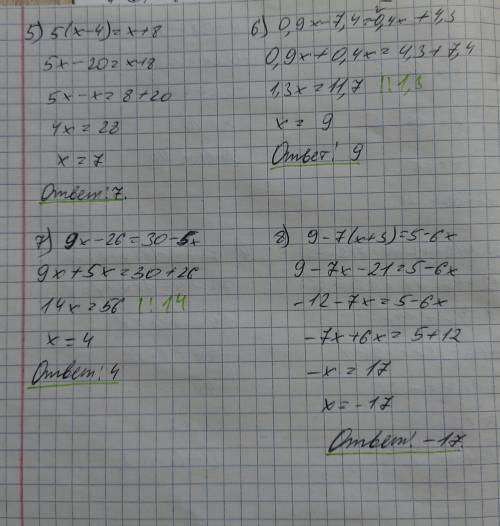 5) 5(x-4)=x+8
5x-20=x+8
5x-x=8+20
4x=28
x=7
Ответ: 7.
6) 0,9x-7,4=-0,4x+4,3
0,9x+0,4x=4,3+7,4
1,3x=11,7 |:1,3
x=9
Ответ: 9
7) 9x-26=30-5x
9x+5x=30+26
14x=56 |:14
x=4
Ответ: 4
8) 9-7(x+3)=5-6x
9-7x-21=5-6x
-12-7x=5-6x
-7x+6x=5+12
-x=17
x=-17
Ответ: -17